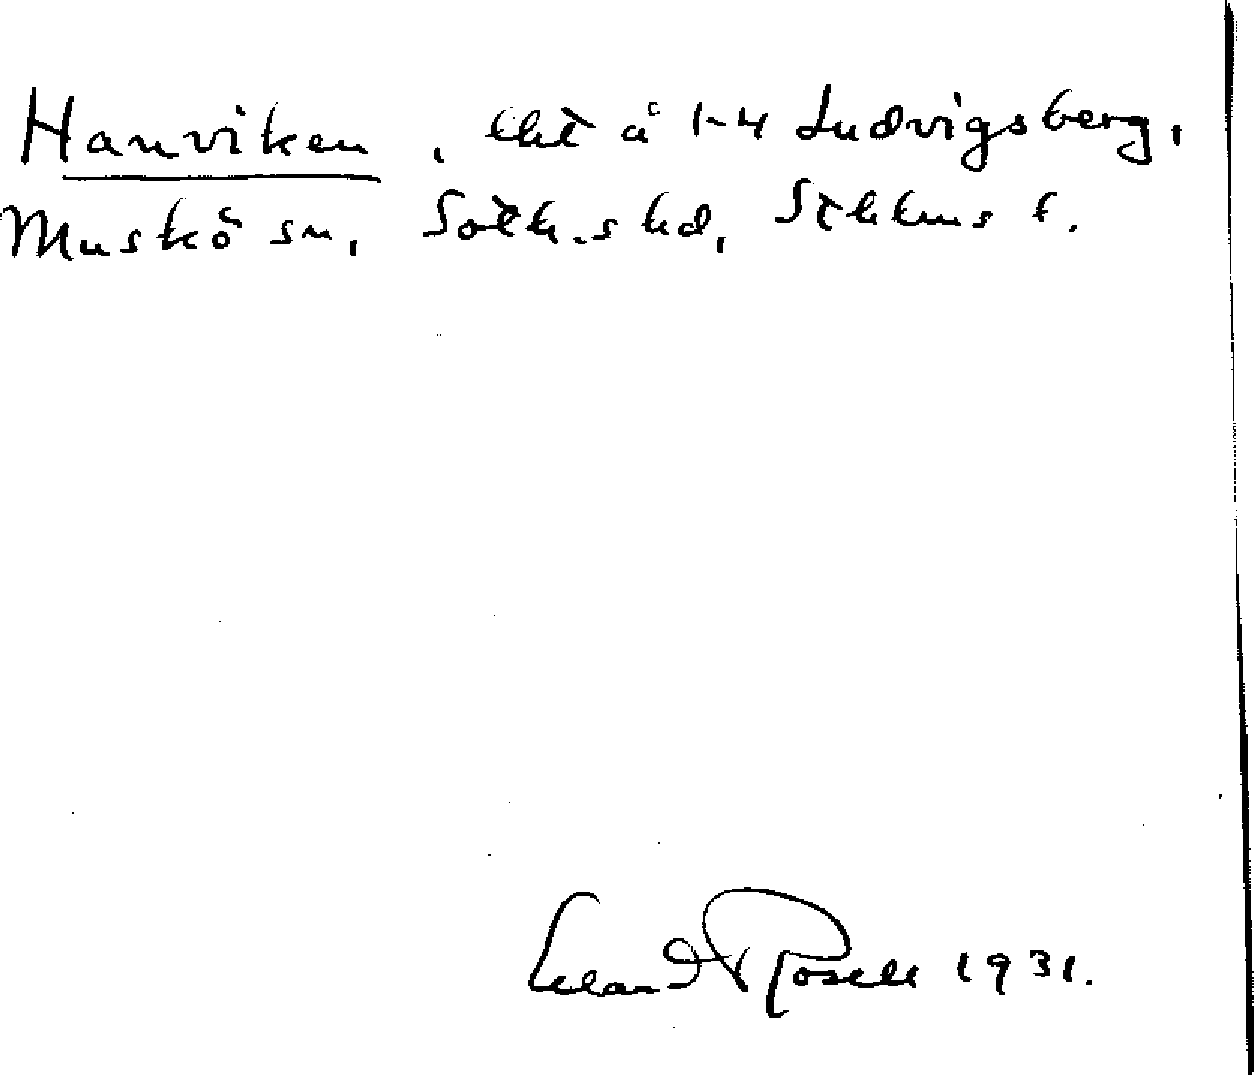 Hanviken, lht å 1-4 Ludvigsberg,
Muskö sn, Soth.s hd, Sthlms l.
Erland Rosell 1931.